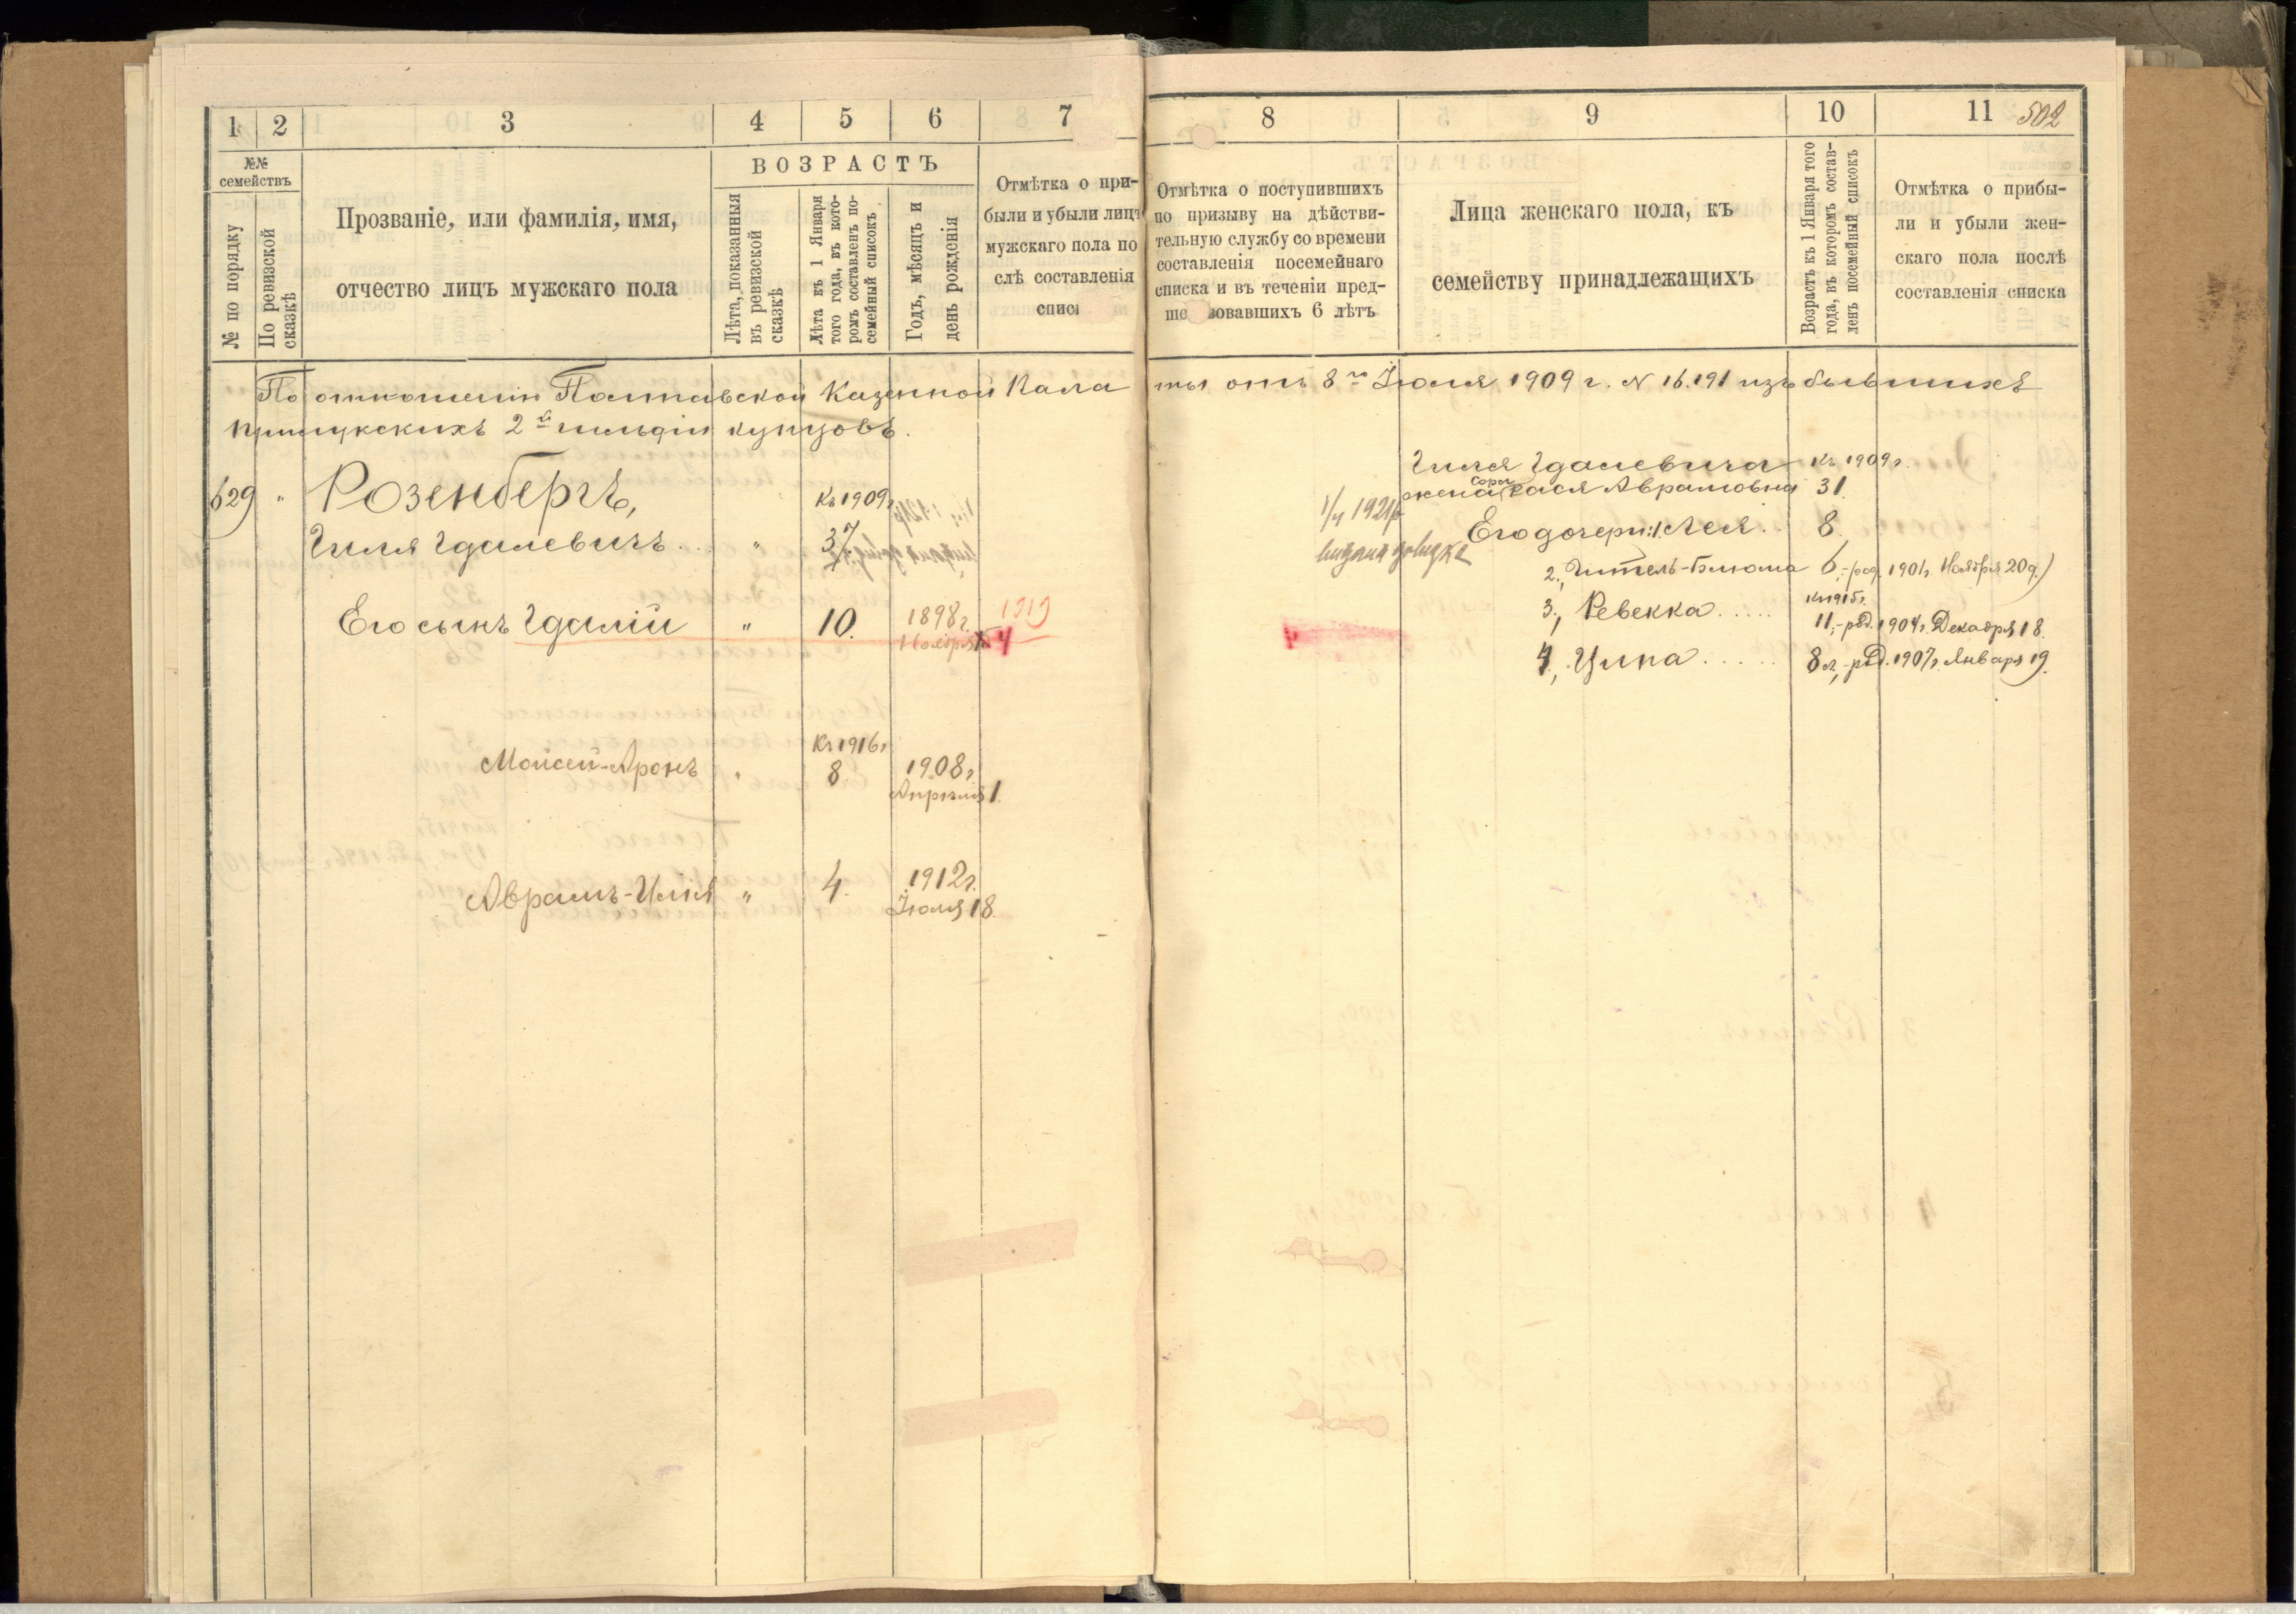 1 2 3 4 5 6 7
№№ семействъ
№ по порядку
По ревизской сказкѣ
Прозваніе, или фамилія, имя,
отчество лицъ мужскаго пола
ВОЗРАСТЪ
Лѣта, показанныя
въ ревизской
сказкѣ
Лѣта къ 1 Января
того года, въ кото-
ромъ составленъ по-
семейный списокъ
Годъ, мѣсяцъ и
день рожденія
Отмѣтка о при-
были и убыли лицъ
мужскаго пола по
слѣ составленія
списк
8 9 10 11 502
Отмѣтка о поступившихъ
по призыву на дѣйстви-
тельную службу со времени
составленія посемейнаго
списка и въ теченіи пред-
ше вовавшихъ 6 лѣтъ
Лица женскаго пола, къ
семейству принадлежащихъ
Возрастъ къ 1 Января того
года, въ которомъ состав-
ленъ посемейный списокъ
Отмѣтка о прибы-
ли и убыли жен-
скаго пола послѣ
составленія списка
По отношенію Полтавской Казенной Пала ты отъ 8го Іюля 1909 г. N 16.191 изъ бывшихъ
Прилукскихъ 2й гильдіи купцовъ.
629 " Розенбергъ, Къ 1909г
Гиля Гдалевичъ " 37.
Его сынъ Гдалій " 10. 1898 г. 1919
Ноября 4
Къ 1916г
Мойсей-Аронъ " 8. 1908г
Апрѣля 1.
Аврамъ-Илія " 4. 1912г.
Іюля 18.
Гиля Гдалевича Къ 1909г.
Сора
жена Хася Аврамовна 31.
1/4 1921р
Его дочери: 1. Лея. 8.
2., Гитель-Блюма 6,-род. 1901г. Ноября 20 д.)
Къ 1915г.
3., Ревекка..... 11,-род. 1904г. Декабря 18.
4., Ципа..... 8 л,-род. 1907г. Января 19.